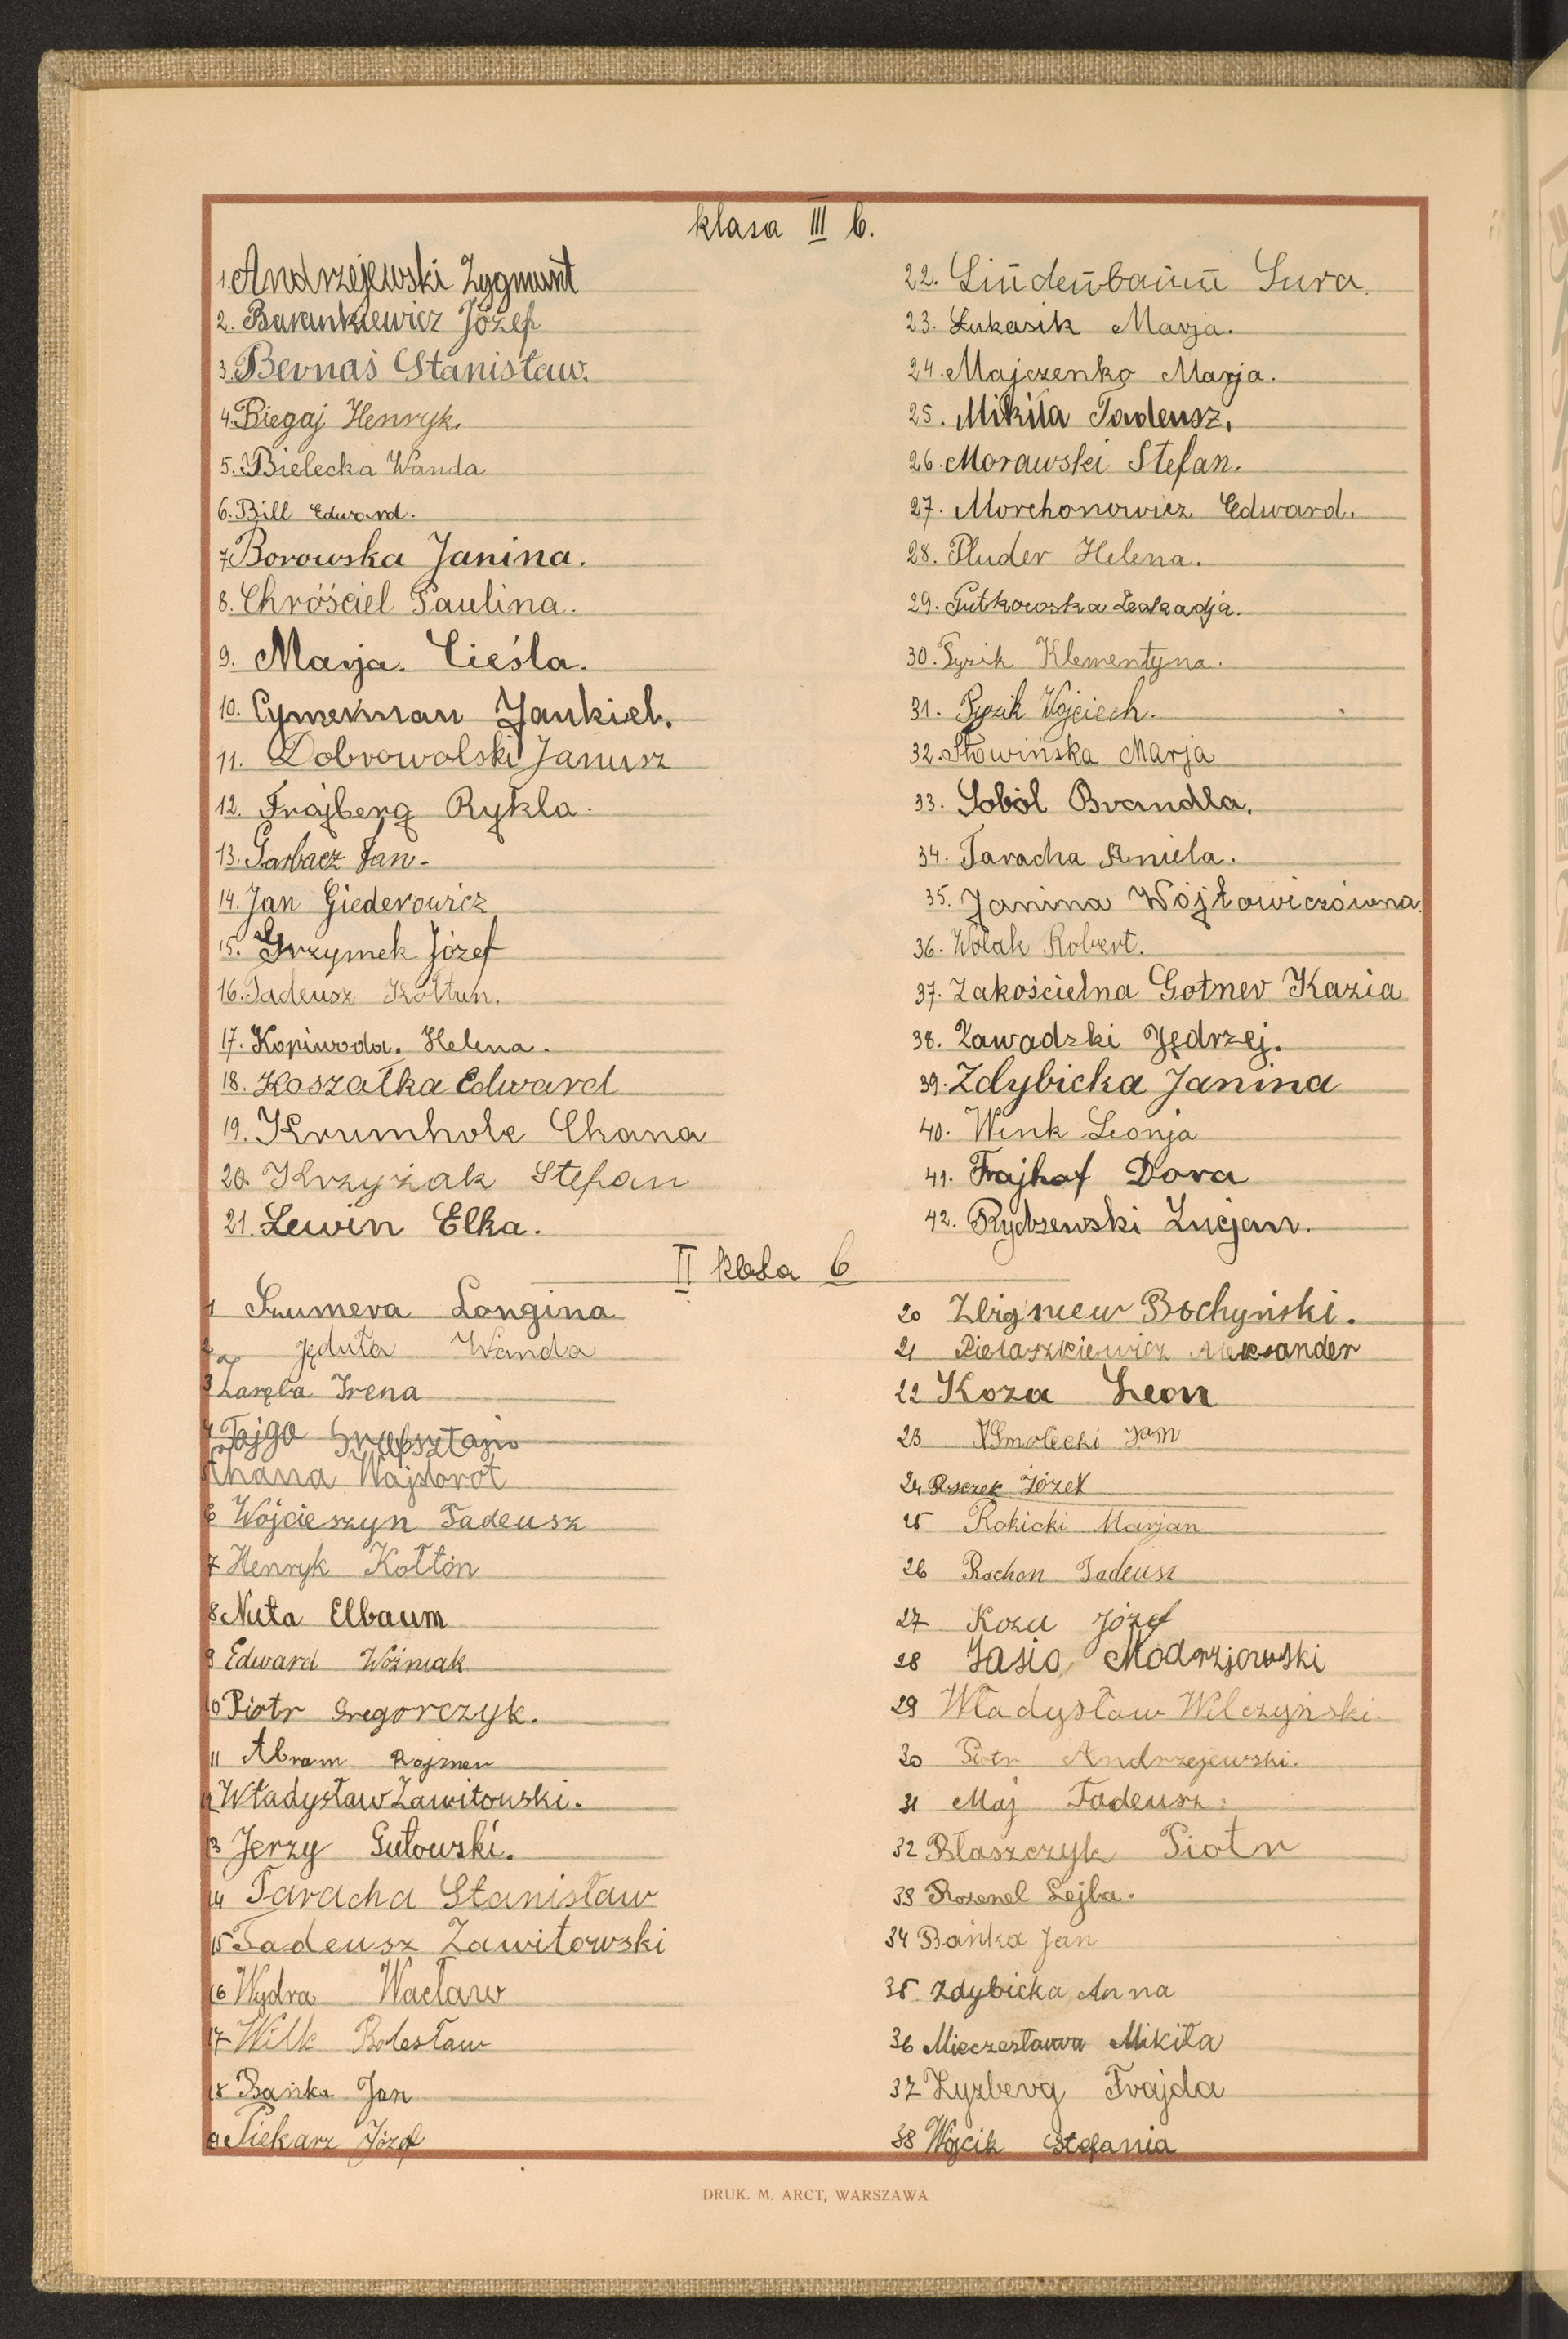 klasa III b.
1. Andrzejewski Zygmunt
2. Barankiewicz Józef
3. Bernaś Stanisław.
4. Biegaj Henryk.
5. Bielecka Wanda
6. Bill Edward.
7. Borowska Janina.
8. Chróściel Paulina.
9. Marja. Cieśla.
10. Cymerman Jankiel.
11. Dobrowolski Janusz
12. Frajberg Rykla.
13. Garbacz Jan.
14. Jan Giederowicz
15. Grzymek Józef
16. Tadeusz Kołtun.
17. Kopiwoda. Helena.
18. Koszałka Edward
19. Krumholc Chana
20. Krzyżak Stefan
21. Lewin Elka.
22. Lindenbaum Sura.
23. Łukasik Marja.
24. Majczenko Marja.
25. Mikiła Tadeusz.
26. Morawski Stefan.
27. Morchonowicz Edward.
28. Pluder Helena.
29. Putkowska Leokadja.
30. Pyzik Klementyna.
31. Pyzik Wojciech.
32. Słowińska Marja
33. Soból Brandla.
34. Taracha Aniela.
35. Janina Wójtowiczówna.
36. Wolak Robert.
37. Zakościelna Gotner Kazia
38. Zawadzki Jędrzej.
39. Zdybicka Janina
40. Wink Leonja
41. Frajhof Dora
42. Rydzewski Lucjan.
II klasa b
1 Szumera Longina
2 Jęduła Wanda
3 Zaręba Irena
4 Fajga
5 Chana Wajsbrot
6 Wójcieszyn Tadeusz
7 Henryk Kołton
8 Nuta Elbaum
9 Edward Woźniak
10 Piotr Gregorczyk.
11 Abram Rojzmen
12 Władysław Zawitowski.
13 Jerzy Gutowski.
14 Taracha Stanisław
15 Tadeusz Zawitowski
16 Wydra Wacław
17 Wilk Bolesław
18 Bańka Jan
19 Piekarz Józef
20 Zbigniew Bochyński.
21 Pietaszkiewicz Aleksander
22 Koza Leon
23 Smolecki Jan
24 Józef
25 Rokicki Marjan
26 Rachon Tadeusz
27 Koza Józef
28 Jasio Modrzjowski
29 Władysław Wilczyński.
30 Piotr Andrzejewski.
31 Maj Tadeusz.
32 Błaszczyk Piotr
33 Rozenel Lejba.
34 Bańka Jan
35 Zdybicka Anna
36 Mieczesława Mikiła
37 Zyzberg Frajda
38 Wójcik Stefania
DRUK. M. ARCT, WARSZAWA